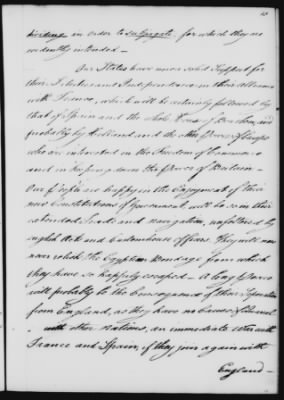 dividing in order to subjugate for which they are
evidently intended —
Our States have now solid Support for
their Liberties and Independence in their alliance
with France, which will be certainly followed by
that of Spain and the whole House of Bourbon, and
probably by Holland and the other Powers of Europe
who are interested in the Freedom of Commerce
and in keeping down the Power of Britain —
Our People are happy in the Enjoyment of their
new Constitutions of Government, will be so in their
extended Trade and navigation, unfettered by
english Acts and Customhouse officers. They will now
never relish the Egyptian Bondage from which
they have so happily escaped — A long Peace
will probably be the Consequence of their Separation
from England, as they have no Cause of Quarrel
with other Nations, an immediate War with
France and Spain, if they join again with
England —